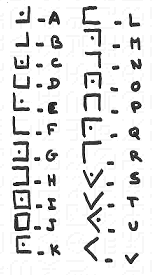 A
B
C
D
E
F
G
H
I
J
K
L
M
N
O
P
Q
R
S
T
U
V